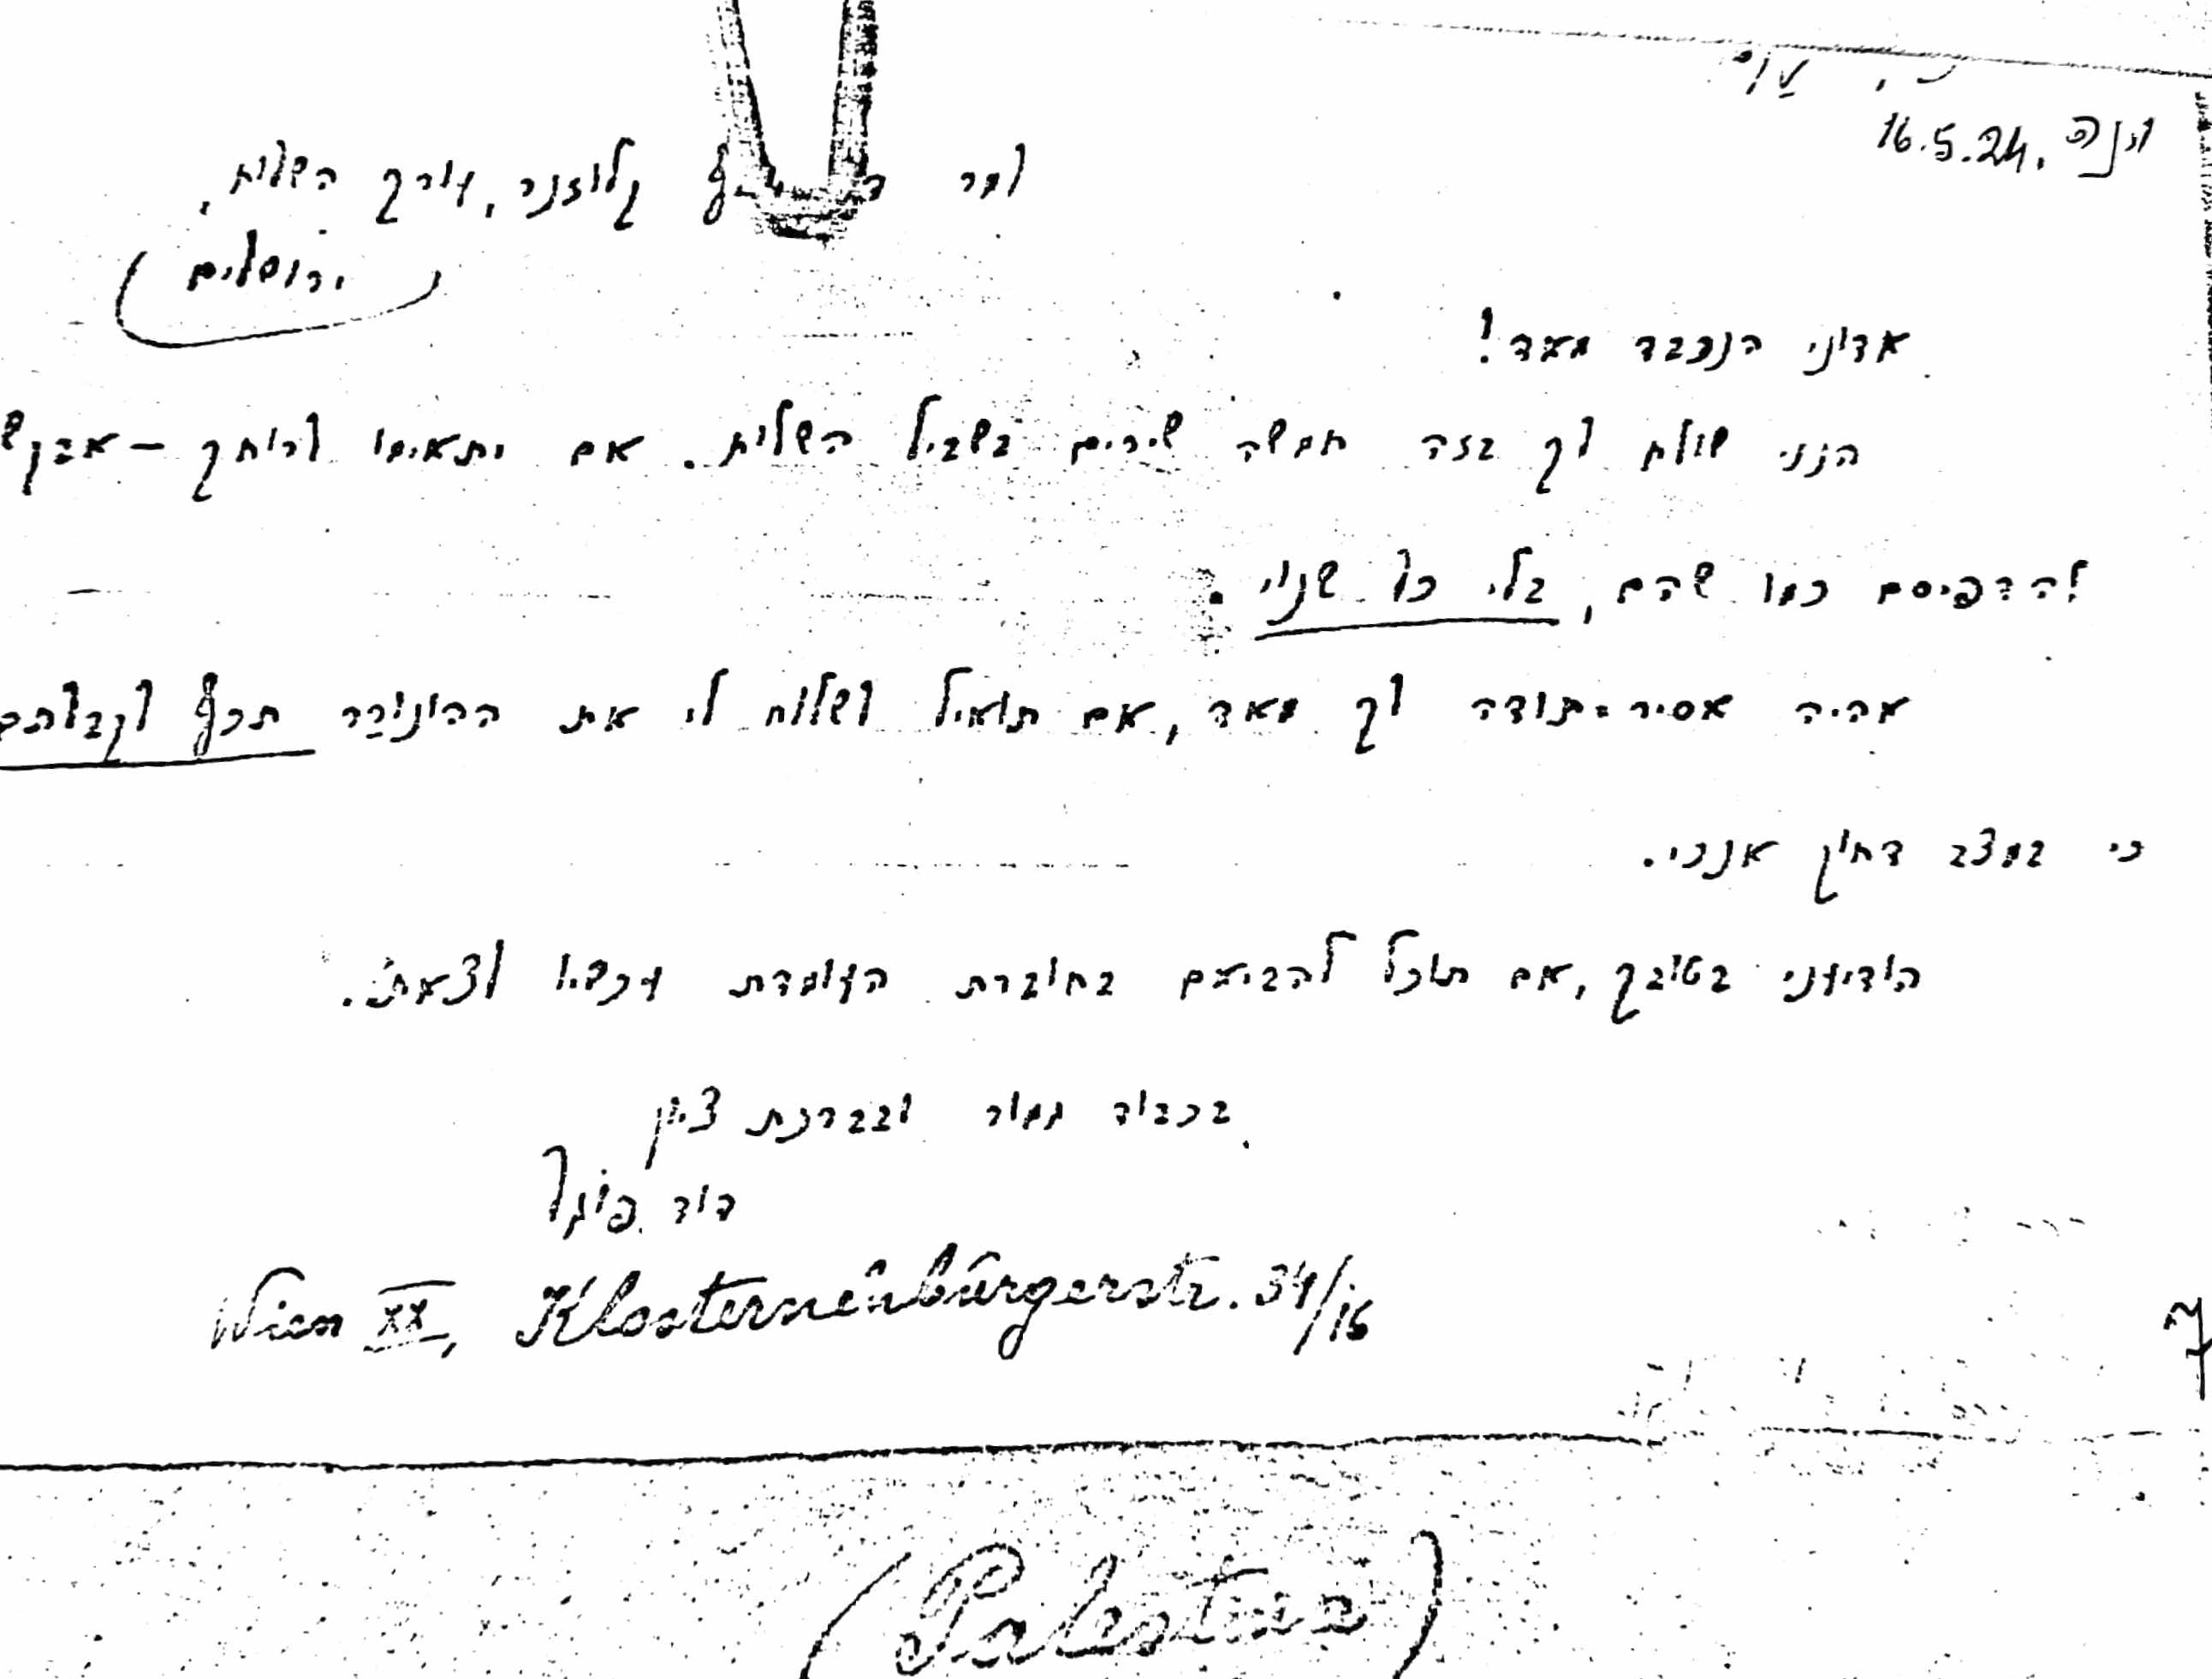 וינה, 16.5.24
למר קלוזנר, עורך השלוח,
ירושלים
אדוני הנכבד מאד!
הנני שולח לך בזה חמשה שירים בשביל השלוח. אם יתאימו לרוחך – אבקש
להדפיסם כמו שהם, בלי כל שנוי.
אהיה אסיר-תודה לך מאד, אם תואיל לשלוח לי את ההונורר תכף לקבלתם
כי במצב דחוק אנכי.
הודיעני בטובך, אם תוכל להביאם בחוברת העומדת עכשיו לצאת.
בכבוד גמור ובברכת ציון
דוד פוגל
Wien XX, Klosterneuburgerstr. 34/16
(Palestina)